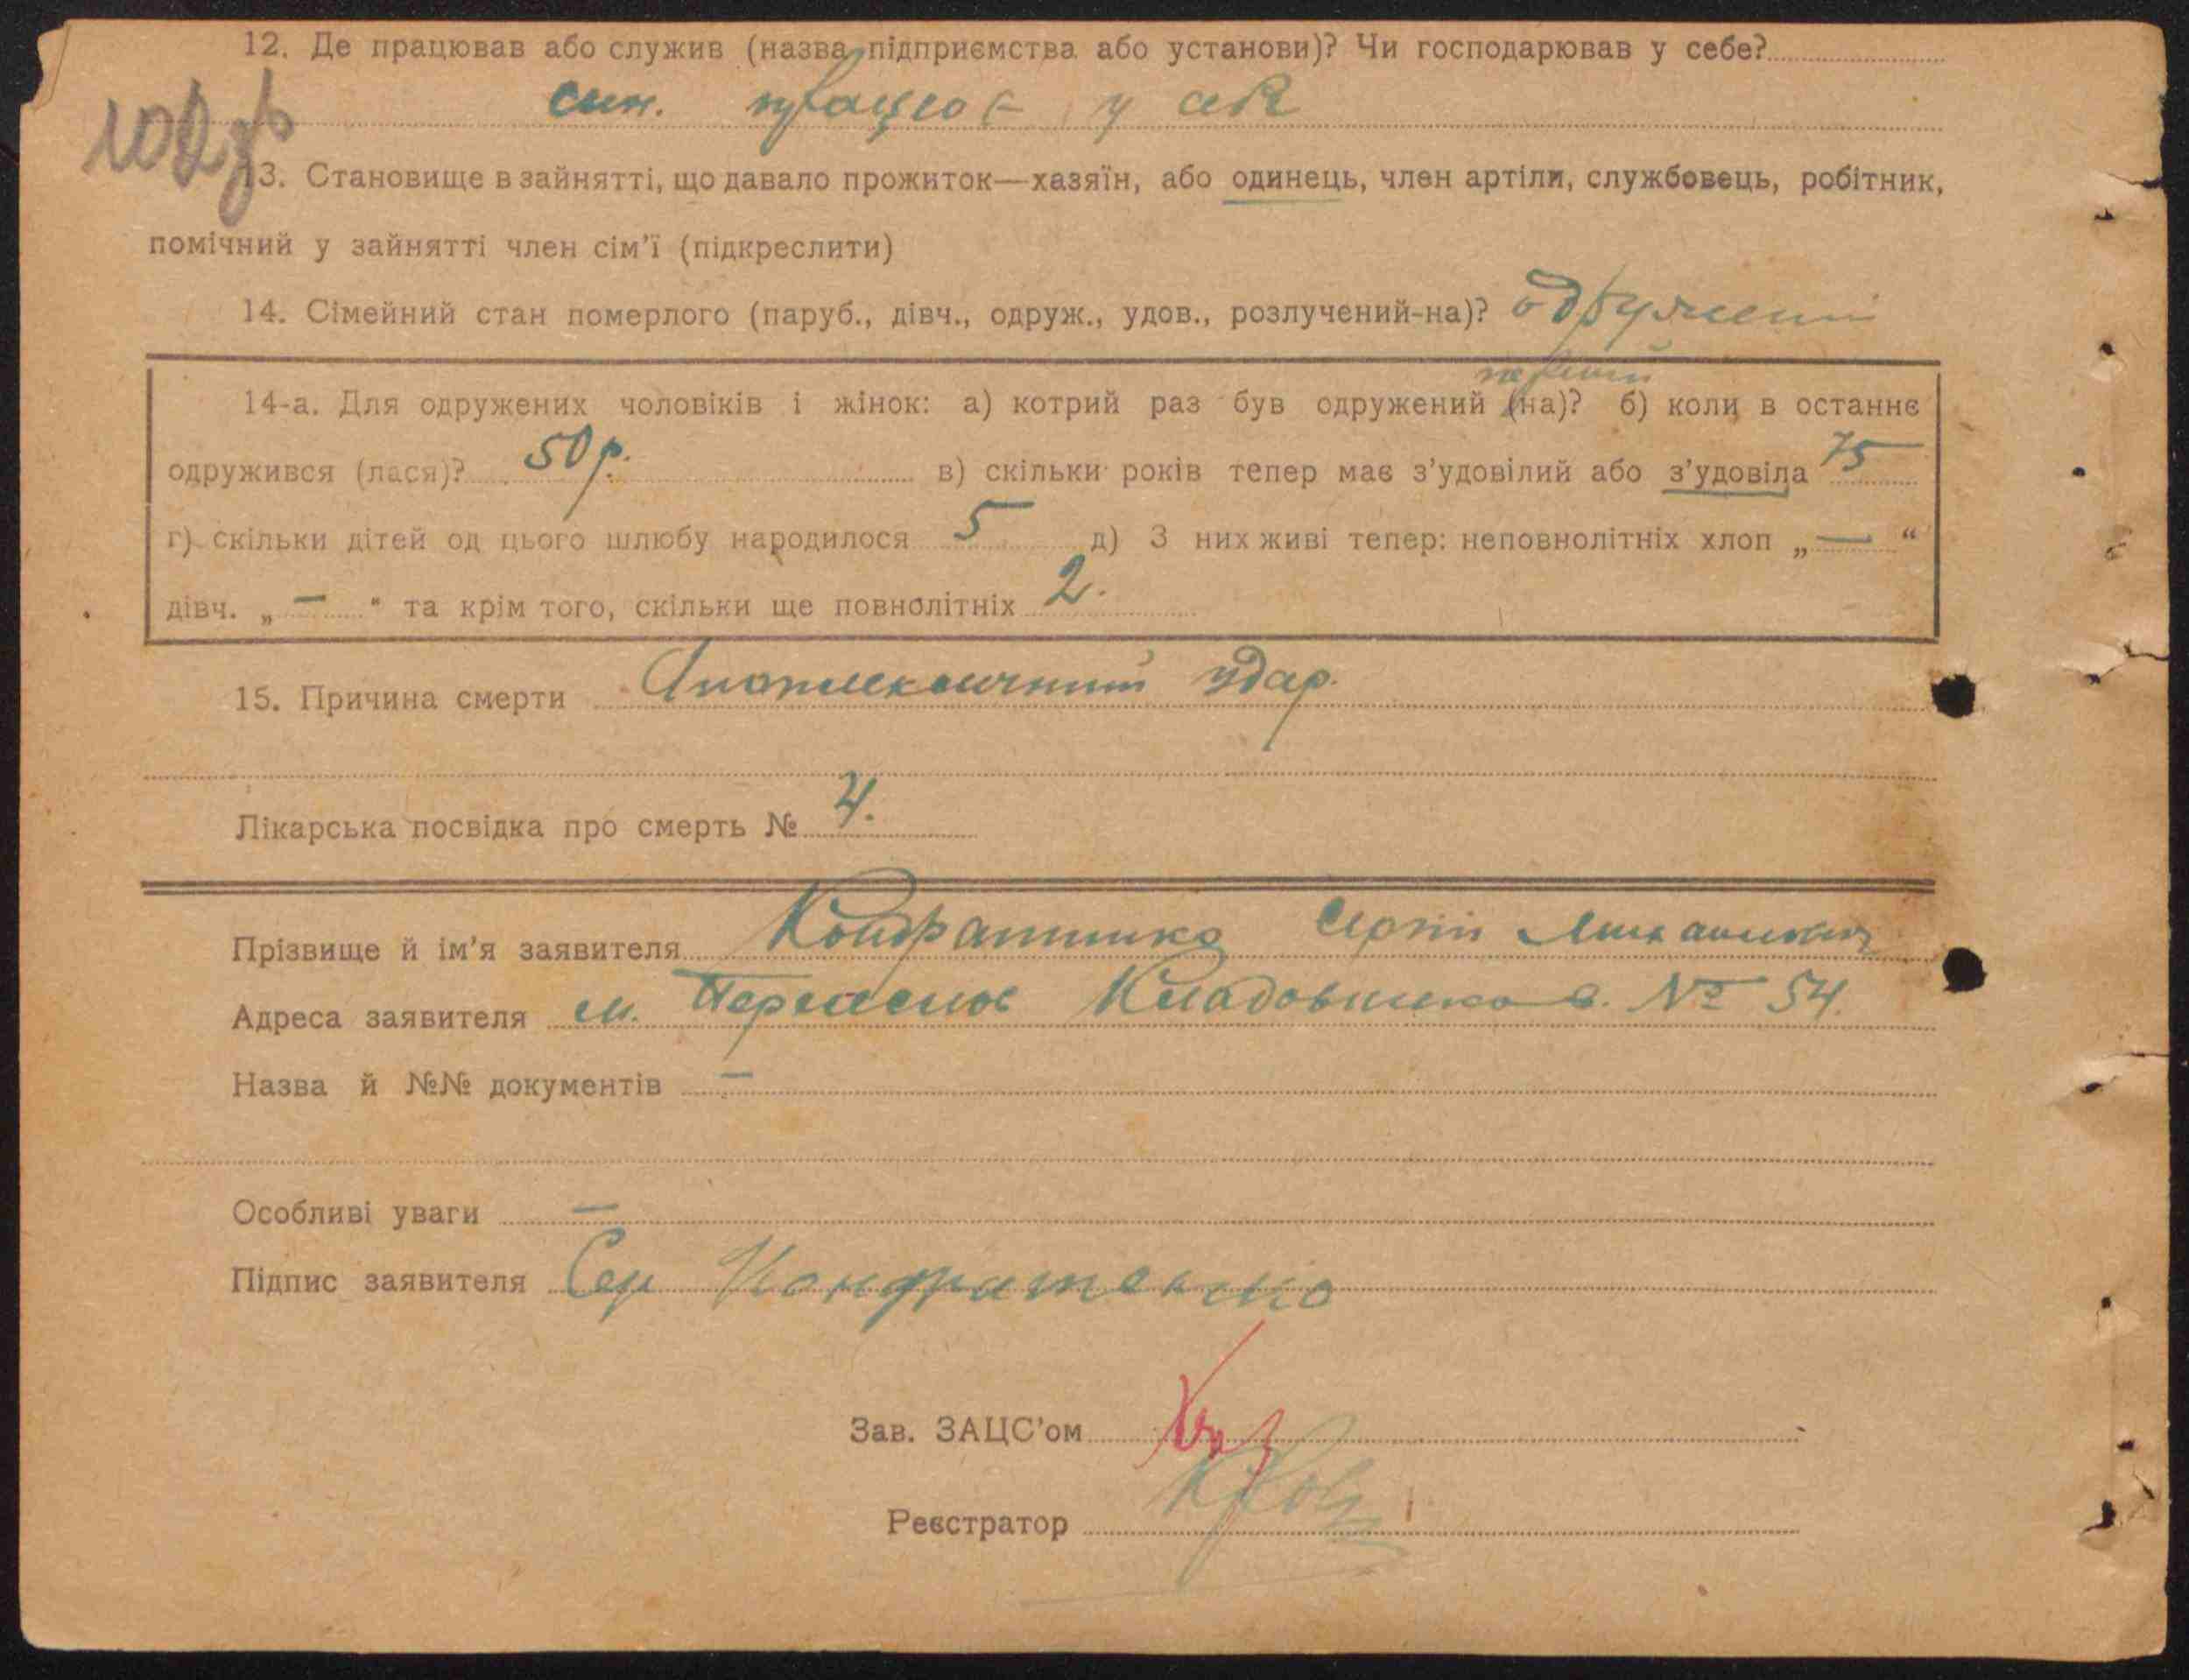 12. Де працював або служив (назва підприємства або установи)? Чи господарював у себе?
син. працює у
102
13. Становище в зайнятті, що давало прожиток—хазяїн, або одинець, член артіли, службовець, робітник,
помічний у зайнятті член сім’ї (підкреслити)
14. Сімейний стан померлого (паруб., дівч., одруж., удов., розлучений-на)? одружений
перший
14-а. Для одружених чоловіків і жінок: а) котрий раз був одружений (на)? б) коли в останнє
одружився (лася)? 50 р. в) скільки років тепер має з’удовілий або з’удовіла 75
г) скільки дітей од цього шлюбу народилося 5 д) З них живі тепер: неповнолітніх хлоп „ — “
дівч. „ — “ та крім того, скільки ще повнолітніх 2.
15. Причина смерти Апоплексичний удар.
Лікарська посвідка про смерть № 4.
Прізвище й ім’я заявителя Кондратенко Сергій Михайлович
Адреса заявителя м. Переяслов № 54.
Назва й №№ документів —
Особливі уваги —
Підпис заявителя Сер Кондратенко
Зав. ЗАЦС’ом
Реєстратор